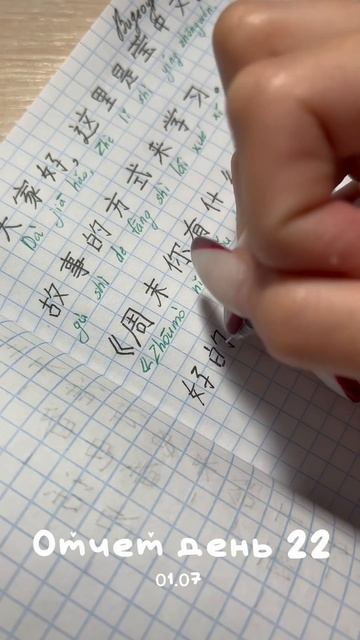 大家好，这里是莹中文
Dà jiā hǎo, zhè lǐ shì yíng zhōngwén
故事的方式来学习.
gù shi de fāng shì lái xué xí
《周末你有什
Zhōumò nǐ
好的
Отчет день 22
01.07